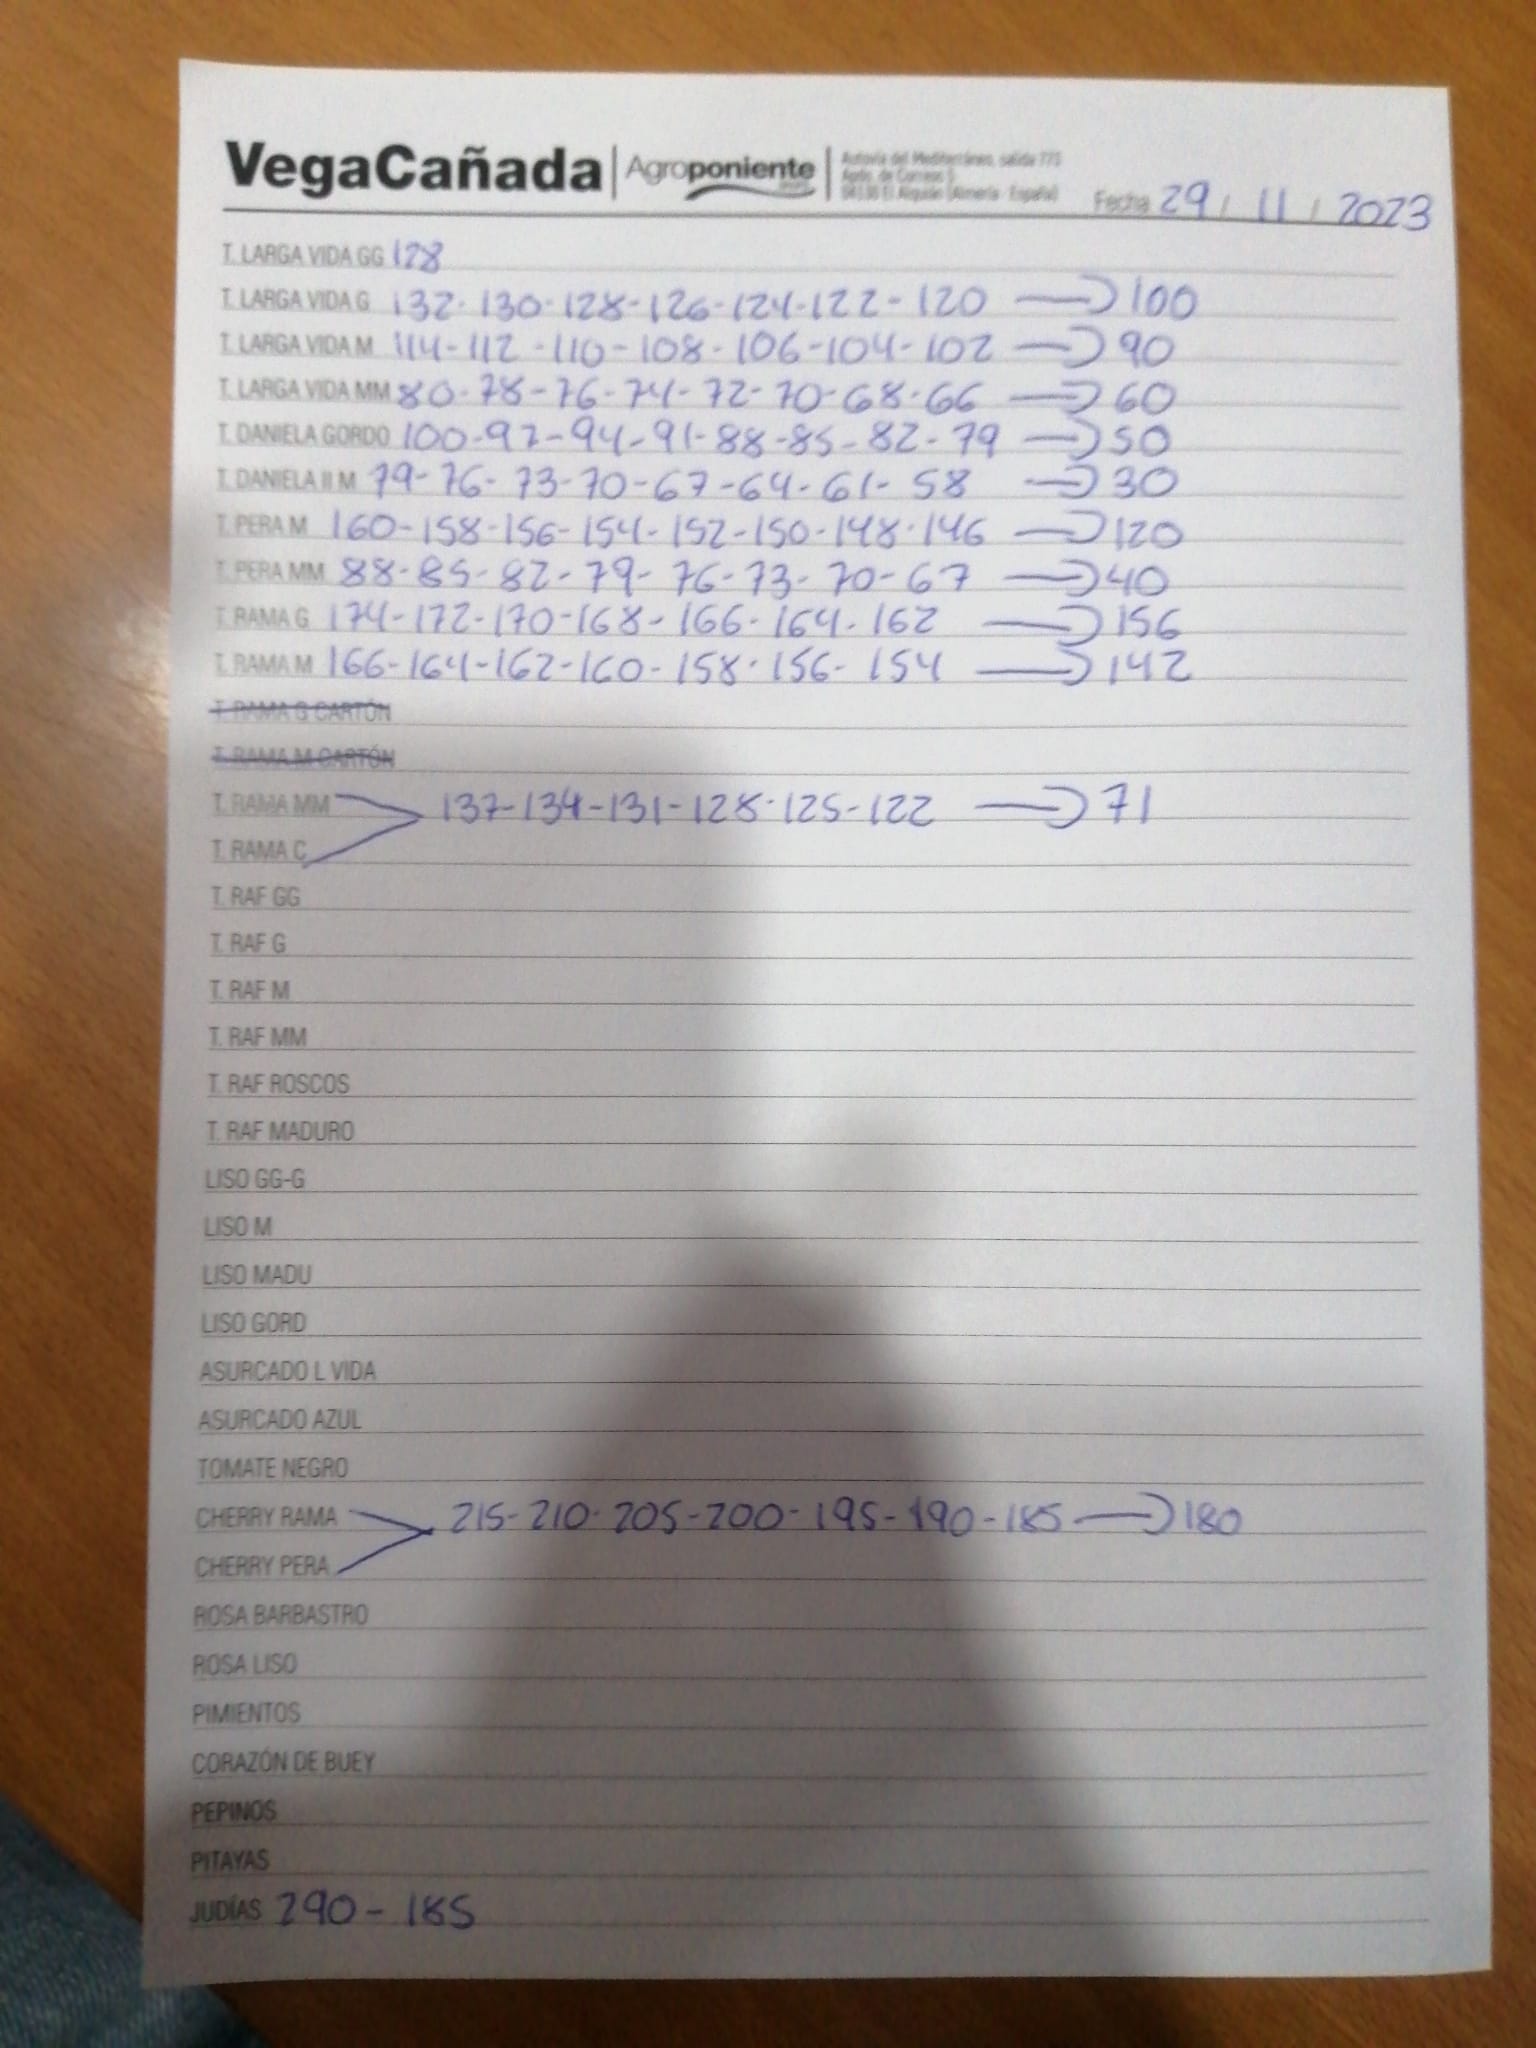 VegaCañada Agroponiente Autovía del Mediterráneo, salida 773
Apdo. de Correos
El Alquián (Almería - España)
Fecha 29 / 11 / 2023
T. LARGA VIDA GG 128
T. LARGA VIDA G 132-130-128-126-124-122-120 → 100
T. LARGA VIDA M 114-112-110-108-106-104-102 → 90
T. LARGA VIDA MM 80-78-76-74-72-70-68-66 → 60
T. DANIELA GORDO 100-97-94-91-88-85-82-79 → 50
T. DANIELA II M 79-76-73-70-67-64-61-58 → 30
T. PERA M 160-158-156-154-152-150-148-146 → 120
T. PERA MM 88-85-82-79-76-73-70-67 → 40
T. RAMA G 174-172-170-168-166-164-162 → 156
T. RAMA M 166-164-162-160-158-156-154 → 142
T. RAMA G CARTÓN
T. RAMA M CARTÓN
T. RAMA MM 137-134-131-128-125-122 → 71
T. RAMA C
T. RAF GG
T. RAF G
T. RAF M
T. RAF MM
T. RAF ROSCOS
T. RAF MADURO
LISO GG-G
LISO M
LISO MADU
LISO GORD
ASURCADO L VIDA
ASURCADO AZUL
TOMATE NEGRO
CHERRY RAMA 215-210-205-200-195-190-185 → 180
CHERRY PERA
ROSA BARBASTRO
ROSA LISO
PIMIENTOS
CORAZÓN DE BUEY
PEPINOS
PITAYAS
JUDÍAS 290-185